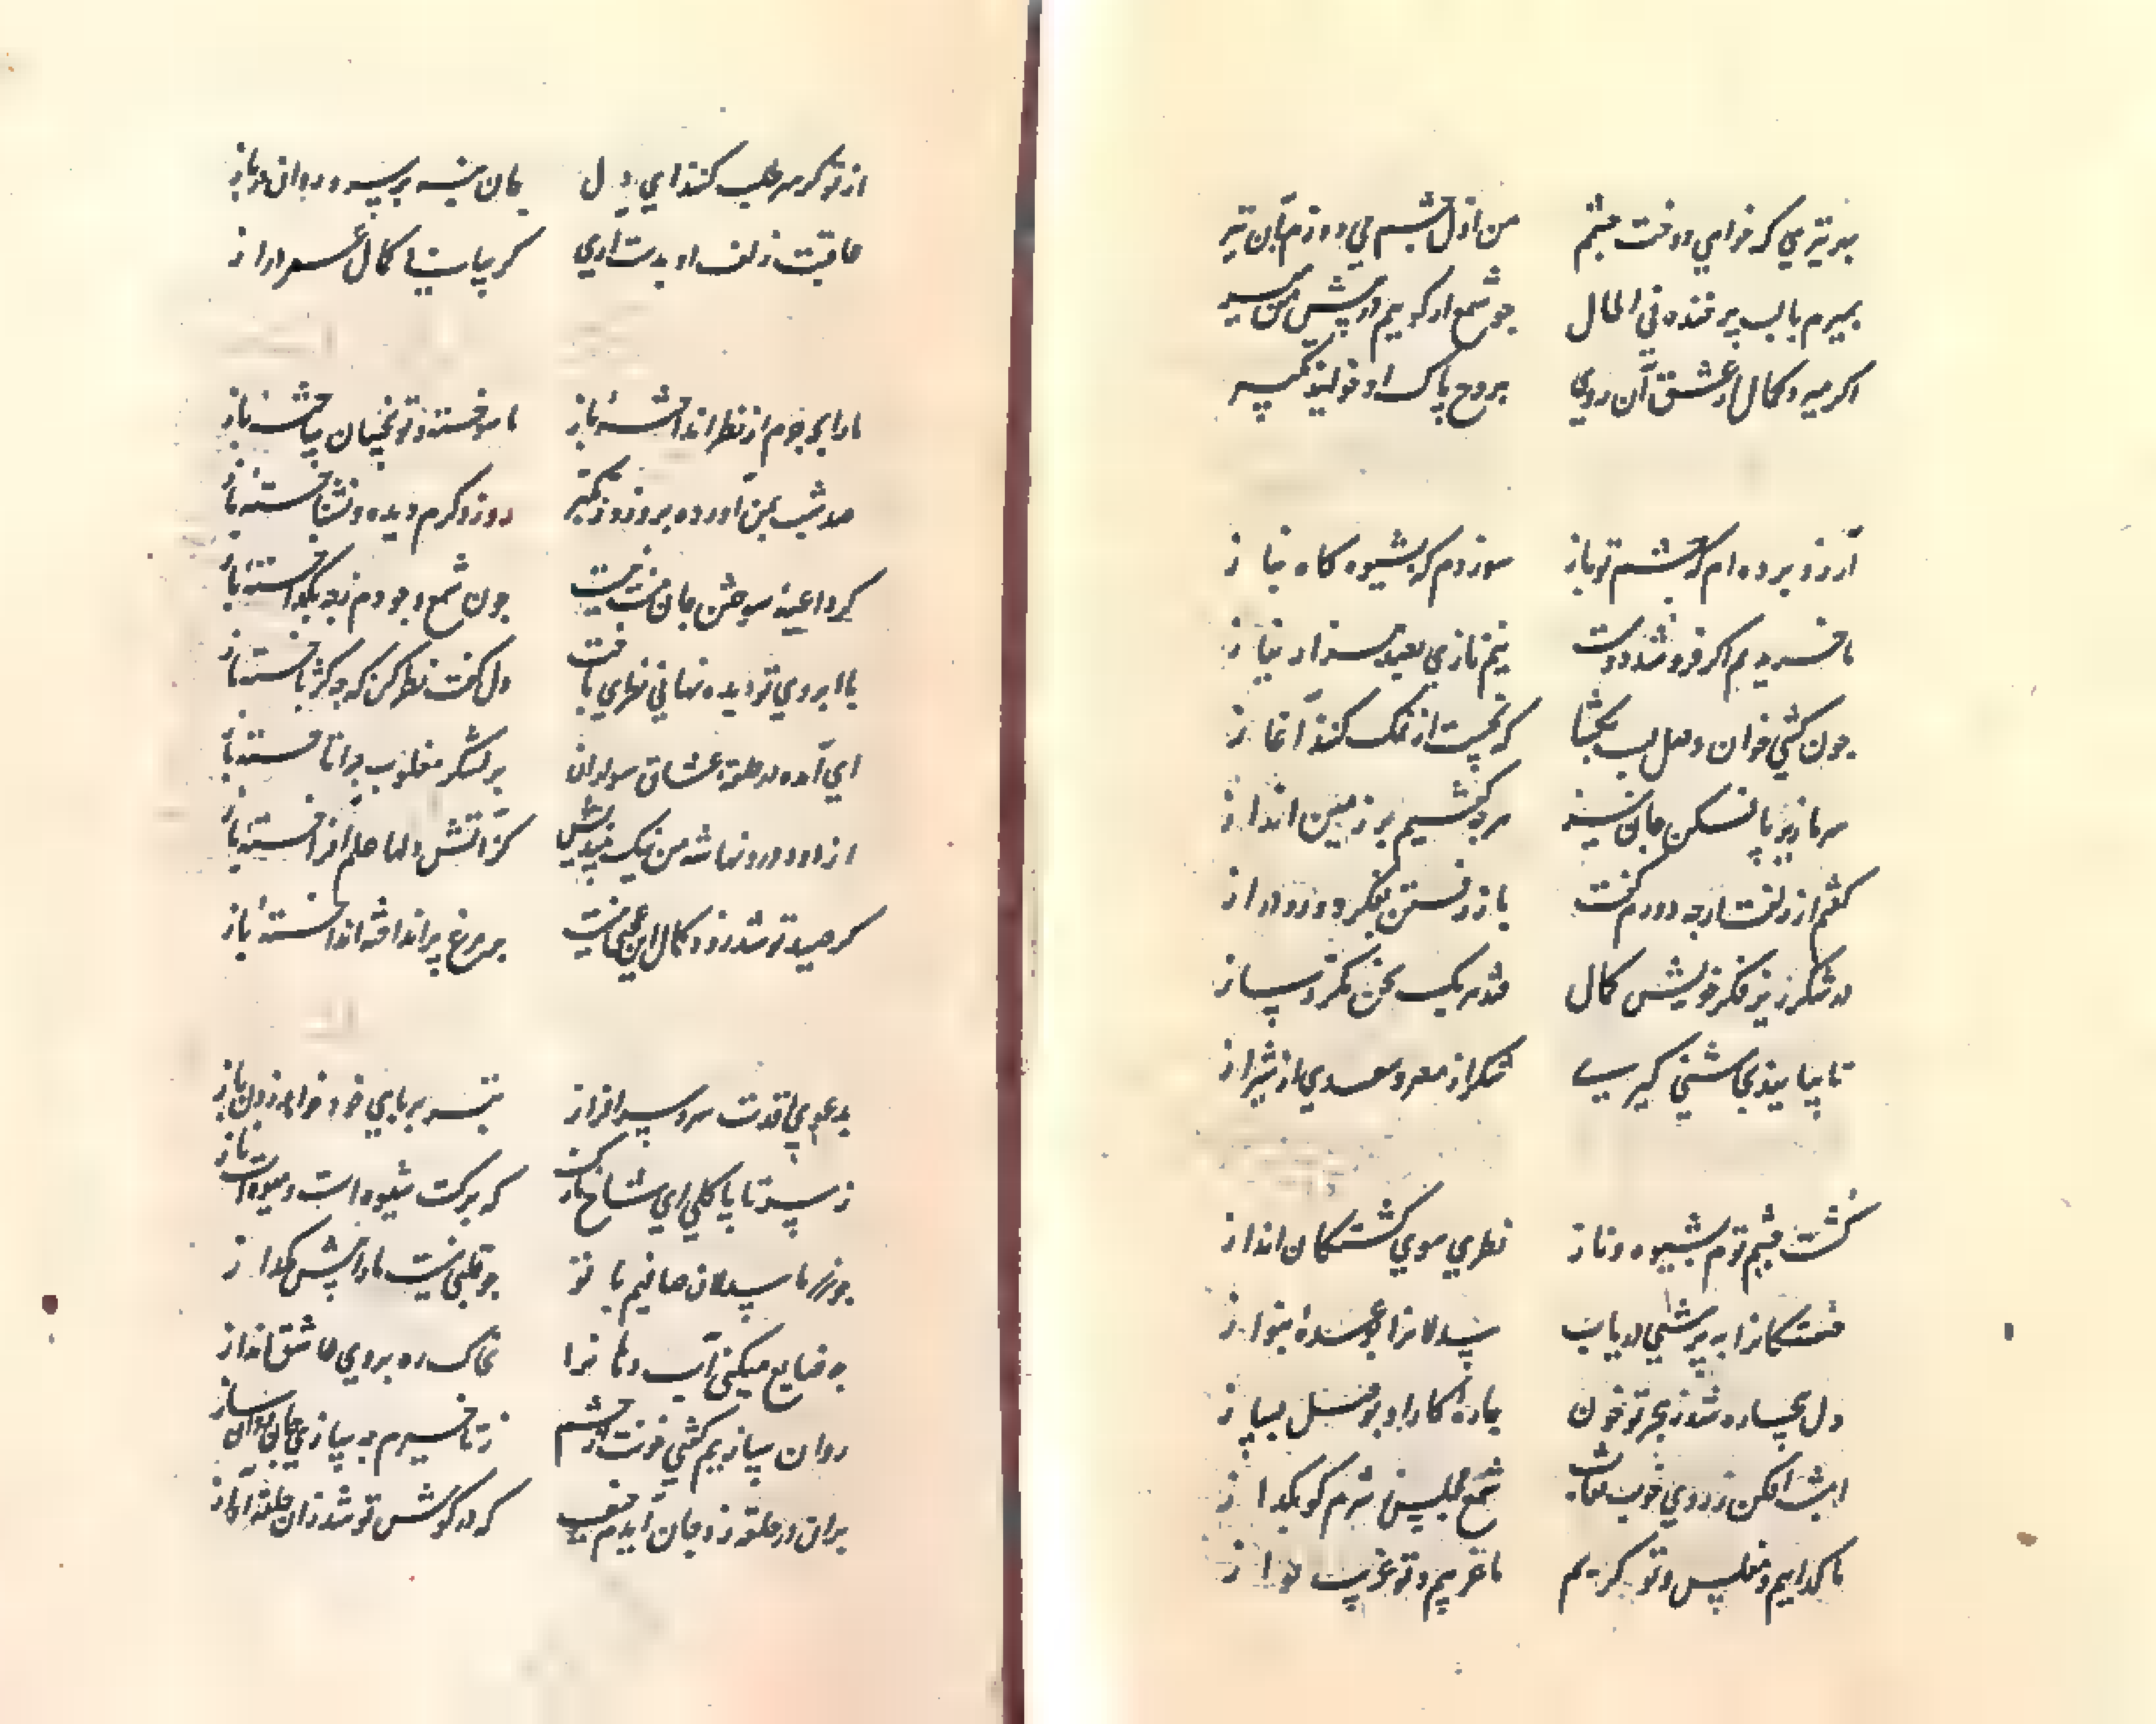 بهر تیری که خواهی دوخت چشمم من اول چشم می دوزم بآن تیر
بمیرم با لب پر خنده فی الحال چو شمع ار گوییم در پیش من میر
اگر میرد کمال از عشق آن روی بروح پاک او خوانید تکبیر
آرزو برده ام که چشم تو باز سوزدم گه بشیوه گاه بناز
ما خریدیم اگر فروشد دوست نیم نازی بصد هزار نیاز
چون کشی خوان وصل لب بگشا که نخست از نمک کنند آغاز
سر ما زیر پا فکن جان نیز هرچه کشتیم بر زمین انداز
گفتم از زلفت ارچه دورم گفت باز رستی ز فکر دور و دراز
در شکرریز فکر خویش کمال قند هر یک سخن مکرر ساز
تا بیایند بچاشنی گیری شکر از مصر و سعدی از شیراز
کشت چشم توام بشیوه و ناز نظری سوی کشتگان انداز
خستگانرا به پرسشی دریاب بیدلانرا بوعده بنواز
دل بیچاره شد ز هجر تو خون چاره کار او بوصل بساز
افکن ز روی خوب نقاب شمع مجلس ز شرم گو بگداز
ما گداییم و مفلس و تو کریم ما غریبیم و تو غریب نواز
از تو گر سر طلب کنند ای دل جان نیز بر سر و روان در باز
عاقبت زلف او بدست آری گر بیابی کمال عمر دراز
ما را بچه جرم از نظر انداخته باز ما سوخته و تو بخسان ساخته باز
صد شب بمن آورده بروز و ز تکبر روزم دیده و نشناخته باز
گر داعیه سوختن جان منت نیست چون شمع وجودم ز چه بگداخته باز
با ابروی تو دیده نهانی نظری باخت دل گفت نظر کن که چه کژ باخته باز
ای آمده در حلقه عشاق سواران بر لشکر مغلوب چرا تاخته باز
از دود درونها شه من نیک بیندیش کز آتش دلها علم افراخته باز
گر صید تو شد زود کمال این عجبی نیست بر مرغ پر انداخته انداخته باز
بدعوی قدت سرو سرافراز بر پای خود خواهد زدن باز
ز سر تا پا گلی ای شاخ نازک که برگت شیوه است و میوه ات ناز
چو زر ما بیدلان صافیم با تو چو قلبی نیست ما را پیش مگداز
چو ضایع میکنی آب دهانرا خاک ره بروی عاشق انداز
روان سازیم گفتی خونت از چشم ز تاخیرم چه سازی جان روان ساز
بران در حلقه زد جان آمدم گفت که در گوش تو شد زان حلقه آواز